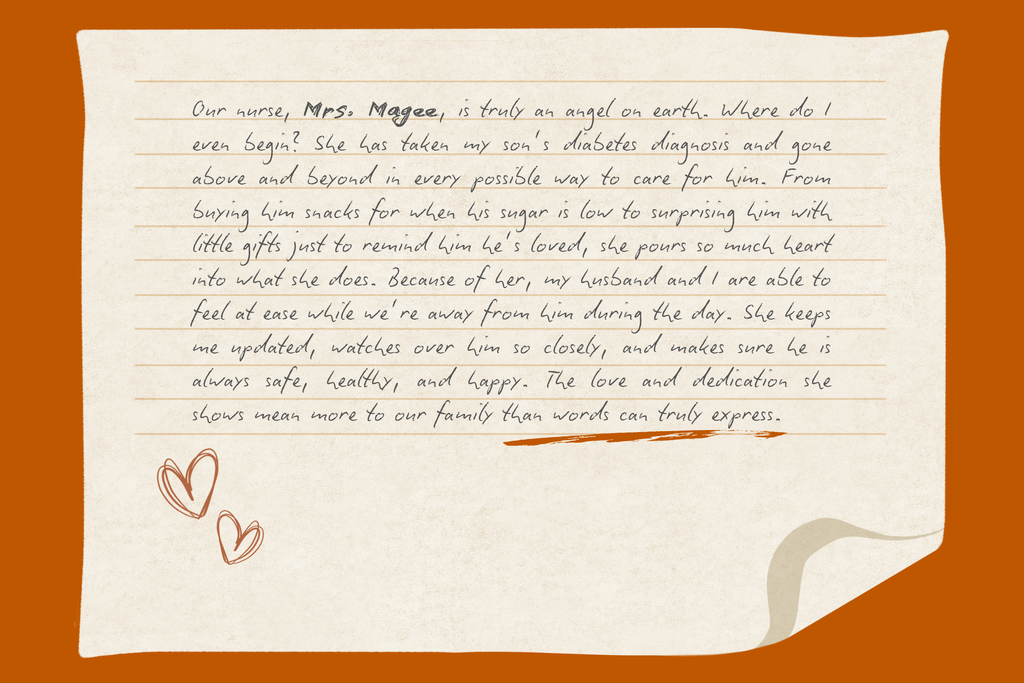 Our nurse, Mrs. Magee, is truly an angel on earth. Where do I
even begin? She has taken my son's diabetes diagnosis and gone
above and beyond in every possible way to care for him. From
buying him snacks for when his sugar is low to surprising him with
little gifts just to remind him he's loved, she pours so much heart
into what she does. Because of her, my husband and I are able to
feel at ease while we're away from him during the day. She keeps
me updated, watches over him so closely, and makes sure he is
always safe, healthy, and happy. The love and dedication she
shows mean more to our family than words can truly express.